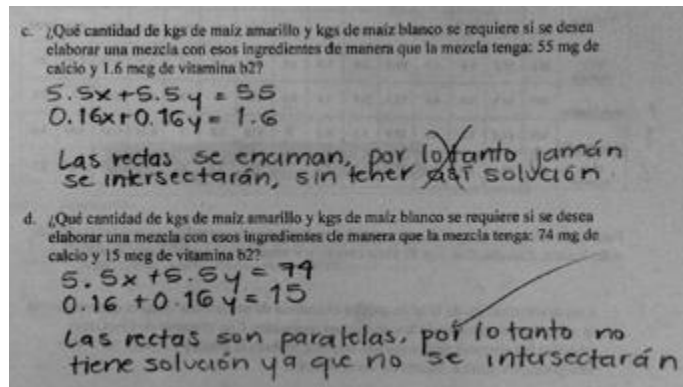 c. ¿Qué cantidad de kgs de maíz amarillo y kgs de maíz blanco se requiere si se desea
elaborar una mezcla con esos ingredientes de manera que la mezcla tenga: 55 mg de
calcio y 1.6 mcg de vitamina b2?
5.5x+5.5y = 55
0.16x+0.16y = 1.6
Las rectas se enciman, por lo tanto jamán
se intersectarán, sin tener así solución
d. ¿Qué cantidad de kgs de maíz amarillo y kgs de maíz blanco se requiere si se desea
elaborar una mezcla con esos ingredientes de manera que la mezcla tenga: 74 mg de
calcio y 15 mcg de vitamina b2?
5.5x+5.5y = 74
0.16 +0.16y = 15
Las rectas son paralelas, por lo tanto no
tiene solución ya que no se intersectarán